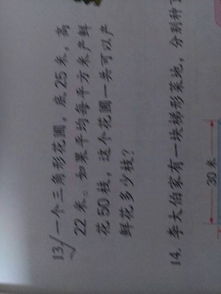 13. 一个三角形花圃，底25米，高
22米。如果平均每平方米产鲜
花50枝，这个花圃一共可以产
鲜花多少枝？
14. 李大伯家有一块梯形菜地，分别种了
30米